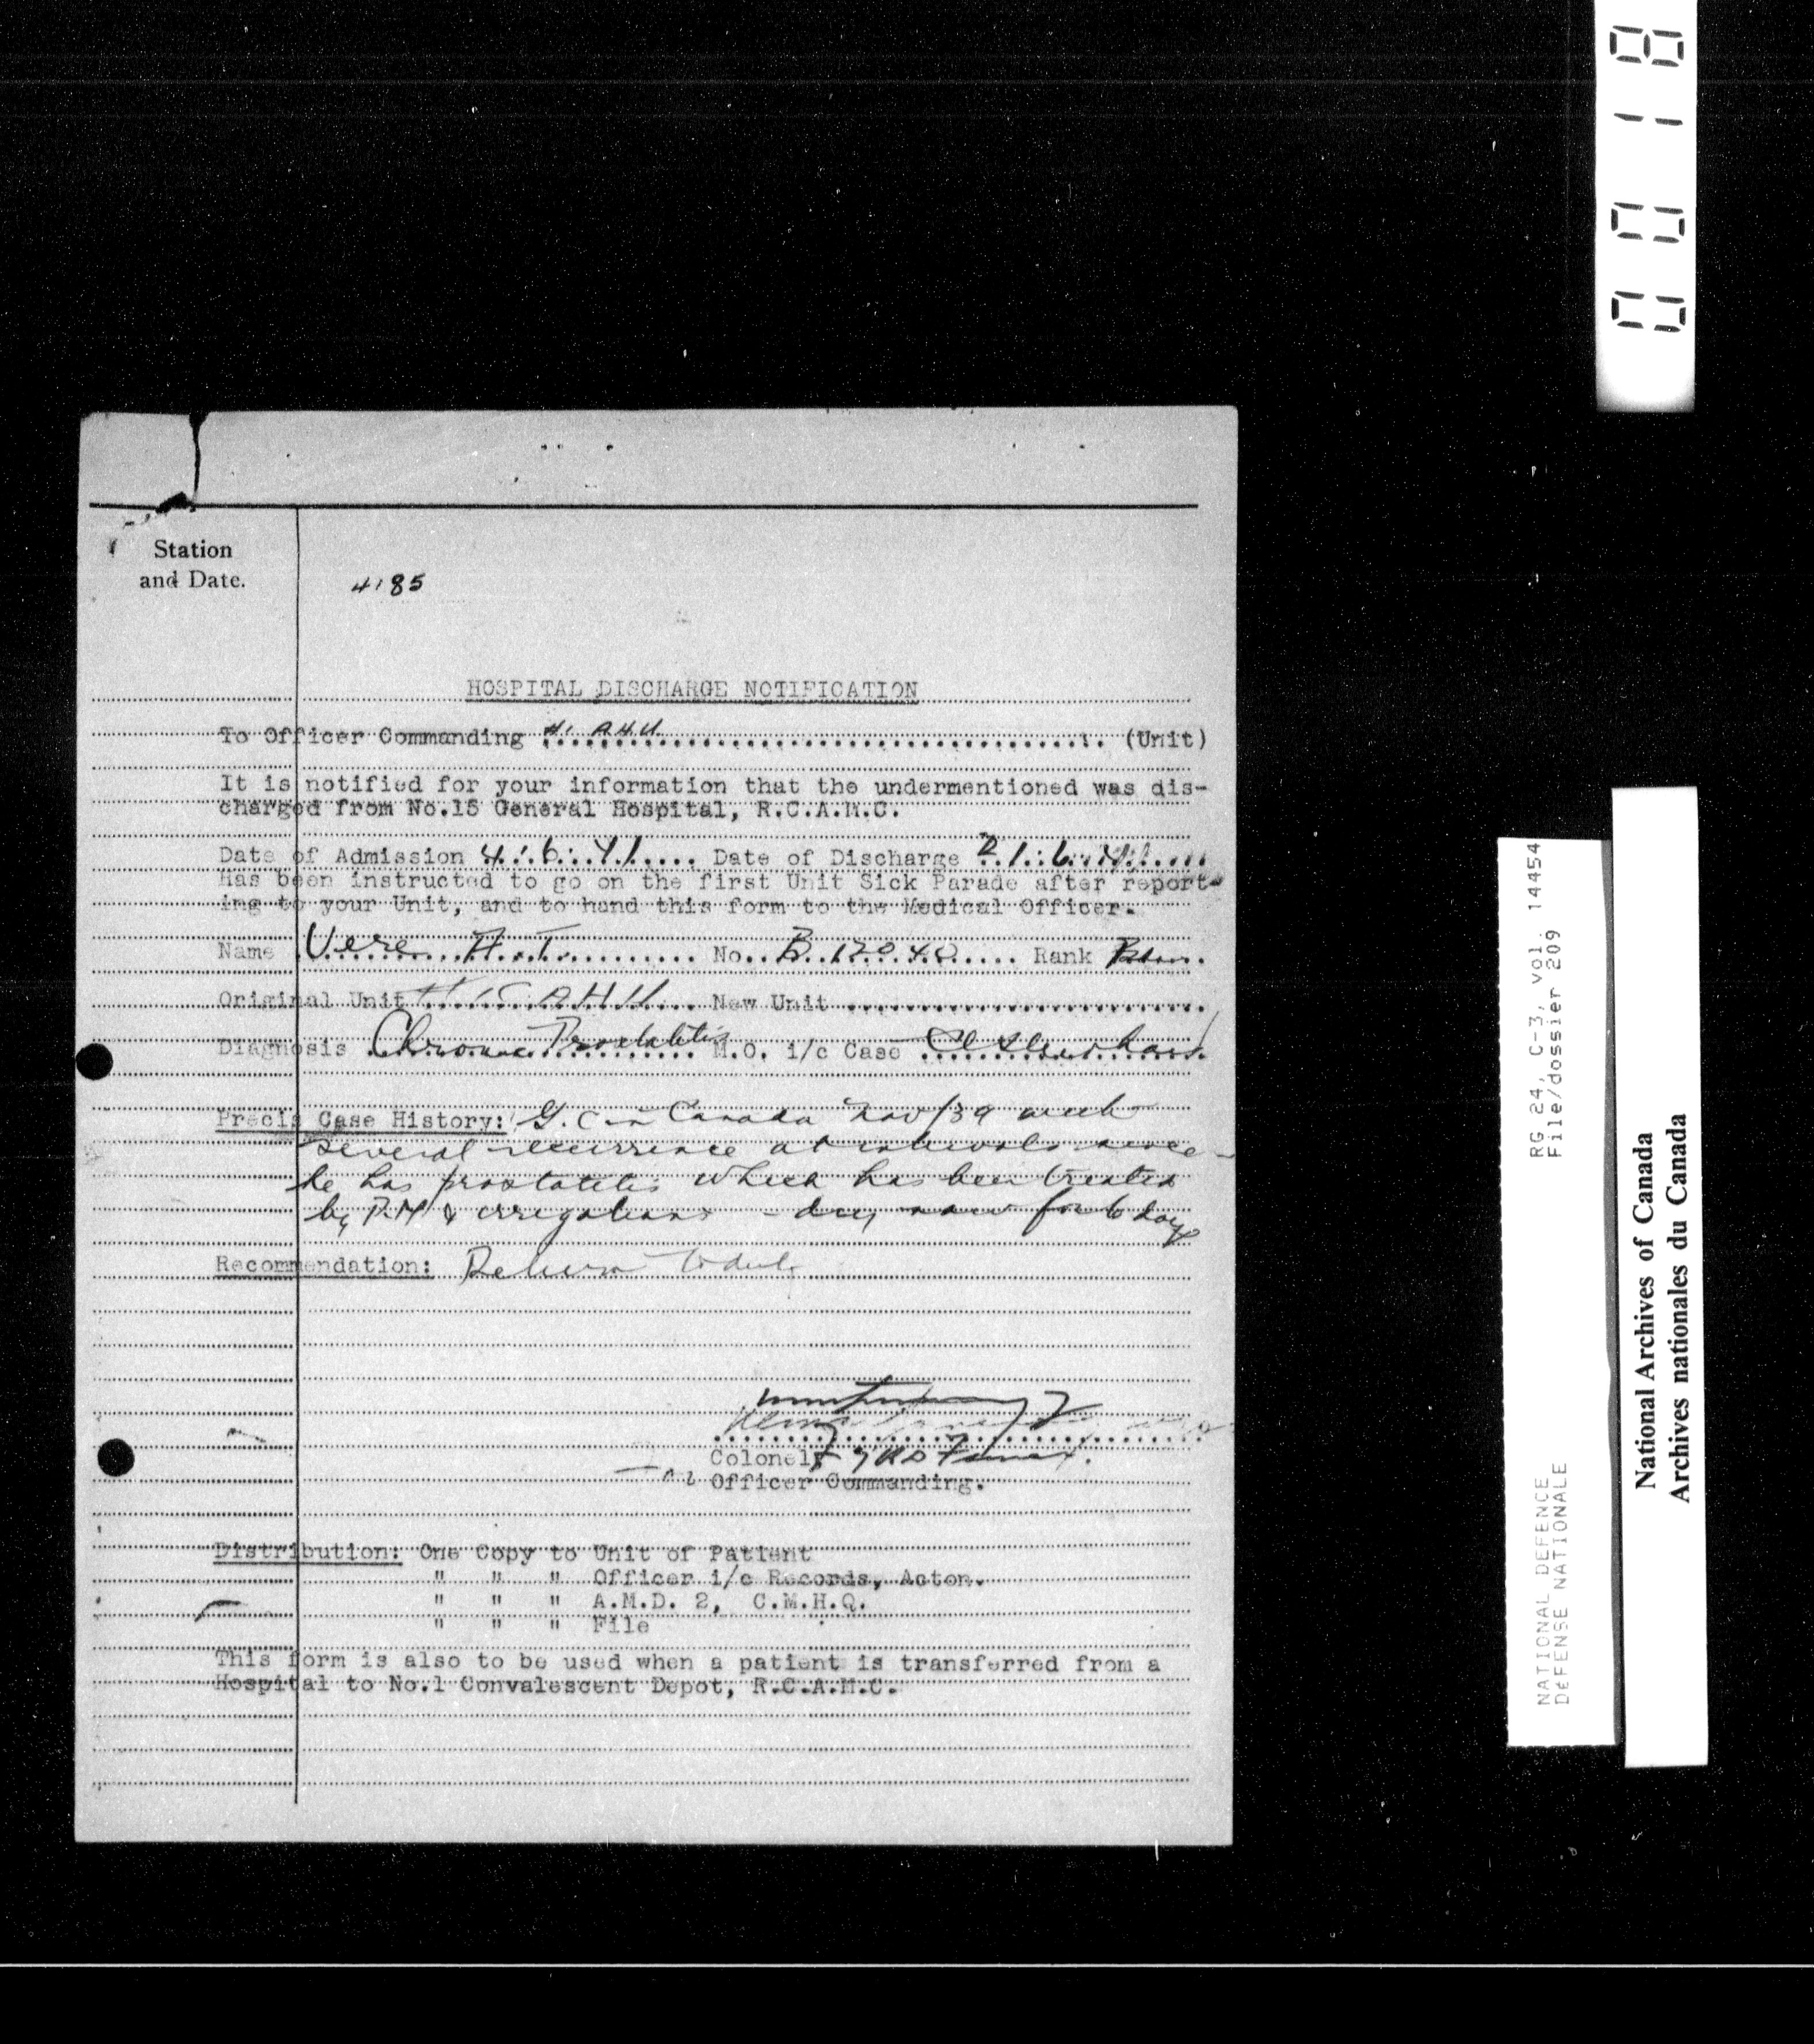 0018
Station
and Date.
4185
HOSPITAL DISCHARGE NOTIFICATION
To Officer Commanding #1 AHU (Unit)
It is notified for your information that the undermentioned was dis-
charged from No.15 General Hospital, R.C.A.M.C.
Date of Admission 4.6.41 Date of Discharge 21.6.41
Has been instructed to go on the first Unit Sick Parade after report-
ing to your Unit, and to hand this form to the Medical Officer.
Name Vere A.T. No. B.12040 Rank
Original Unit New Unit
Diagnosis Chronic Prostatitis M.O. i/c Case
Precis Case History: G.C in Canada Nov/39 with
several recurrence at intervals since
he has prostatitis which has been treated
by P.M & irrigations - dry now for 6 days
Recommendation: Return to duty
Colonel
Officer Commanding.
Distribution: One Copy to Unit of Patient
" " " Officer i/c Records, Acton.
" " " A.M.D. 2, C.M.H.Q.
" " " File
This form is also to be used when a patient is transferred from a
Hospital to No.1 Convalescent Depot, R.C.A.M.C.
NATIONAL DEFENCE RG 24, C-3, vol. 14454
DEFENSE NATIONALE File/dossier 209
National Archives of Canada
Archives nationales du Canada